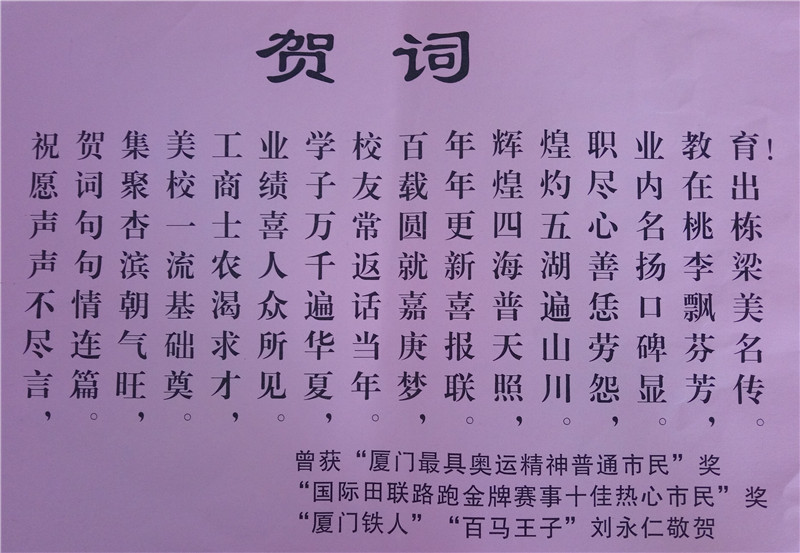 贺词
祝愿声声不尽言，
贺词句句情连篇。
集聚杏滨朝气旺，
美校一流基础奠。
工商士农渴求才，
业绩喜人众所见。
学子万千遍华夏，
校友常返话当年。
百载圆就嘉庚梦，
年年更新喜报联。
辉煌四海普天照，
煌灼五湖遍山川。
职尽心善恁劳怨，
业内名扬口碑显。
教在桃李飘芬芳，
育！出栋梁美名传。
曾获“厦门最具奥运精神普通市民”奖
“国际田联路跑金牌赛事十佳热心市民”奖
“厦门铁人”“百马王子”刘永仁敬贺